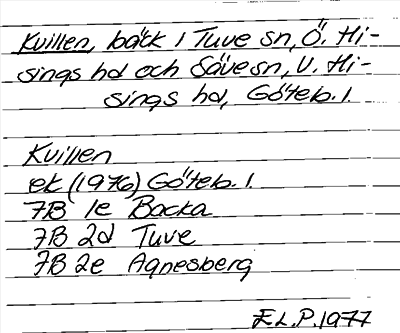 Kvillen, bäck i Tuve sn, Ö. Hi-
sings hd och Säve sn, V. Hi-
sings hd, Göteb. l.
Kvillen
ek (1976) Göteb. l.
7B 1e Backa
7B 2d Tuve
7B 2e Agnesberg
F.L.P. 1977